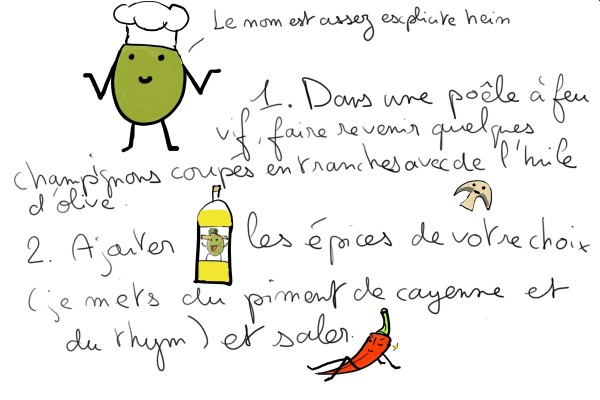 Le nom est assez explicite hein
1. Dans une poêle à feu
vif, faire revenir quelques
champignons coupés en tranches avec de l'huile
d'olive.
2. Ajouter les épices de votre choix
(je mets du piment de cayenne et
du thym) et saler.